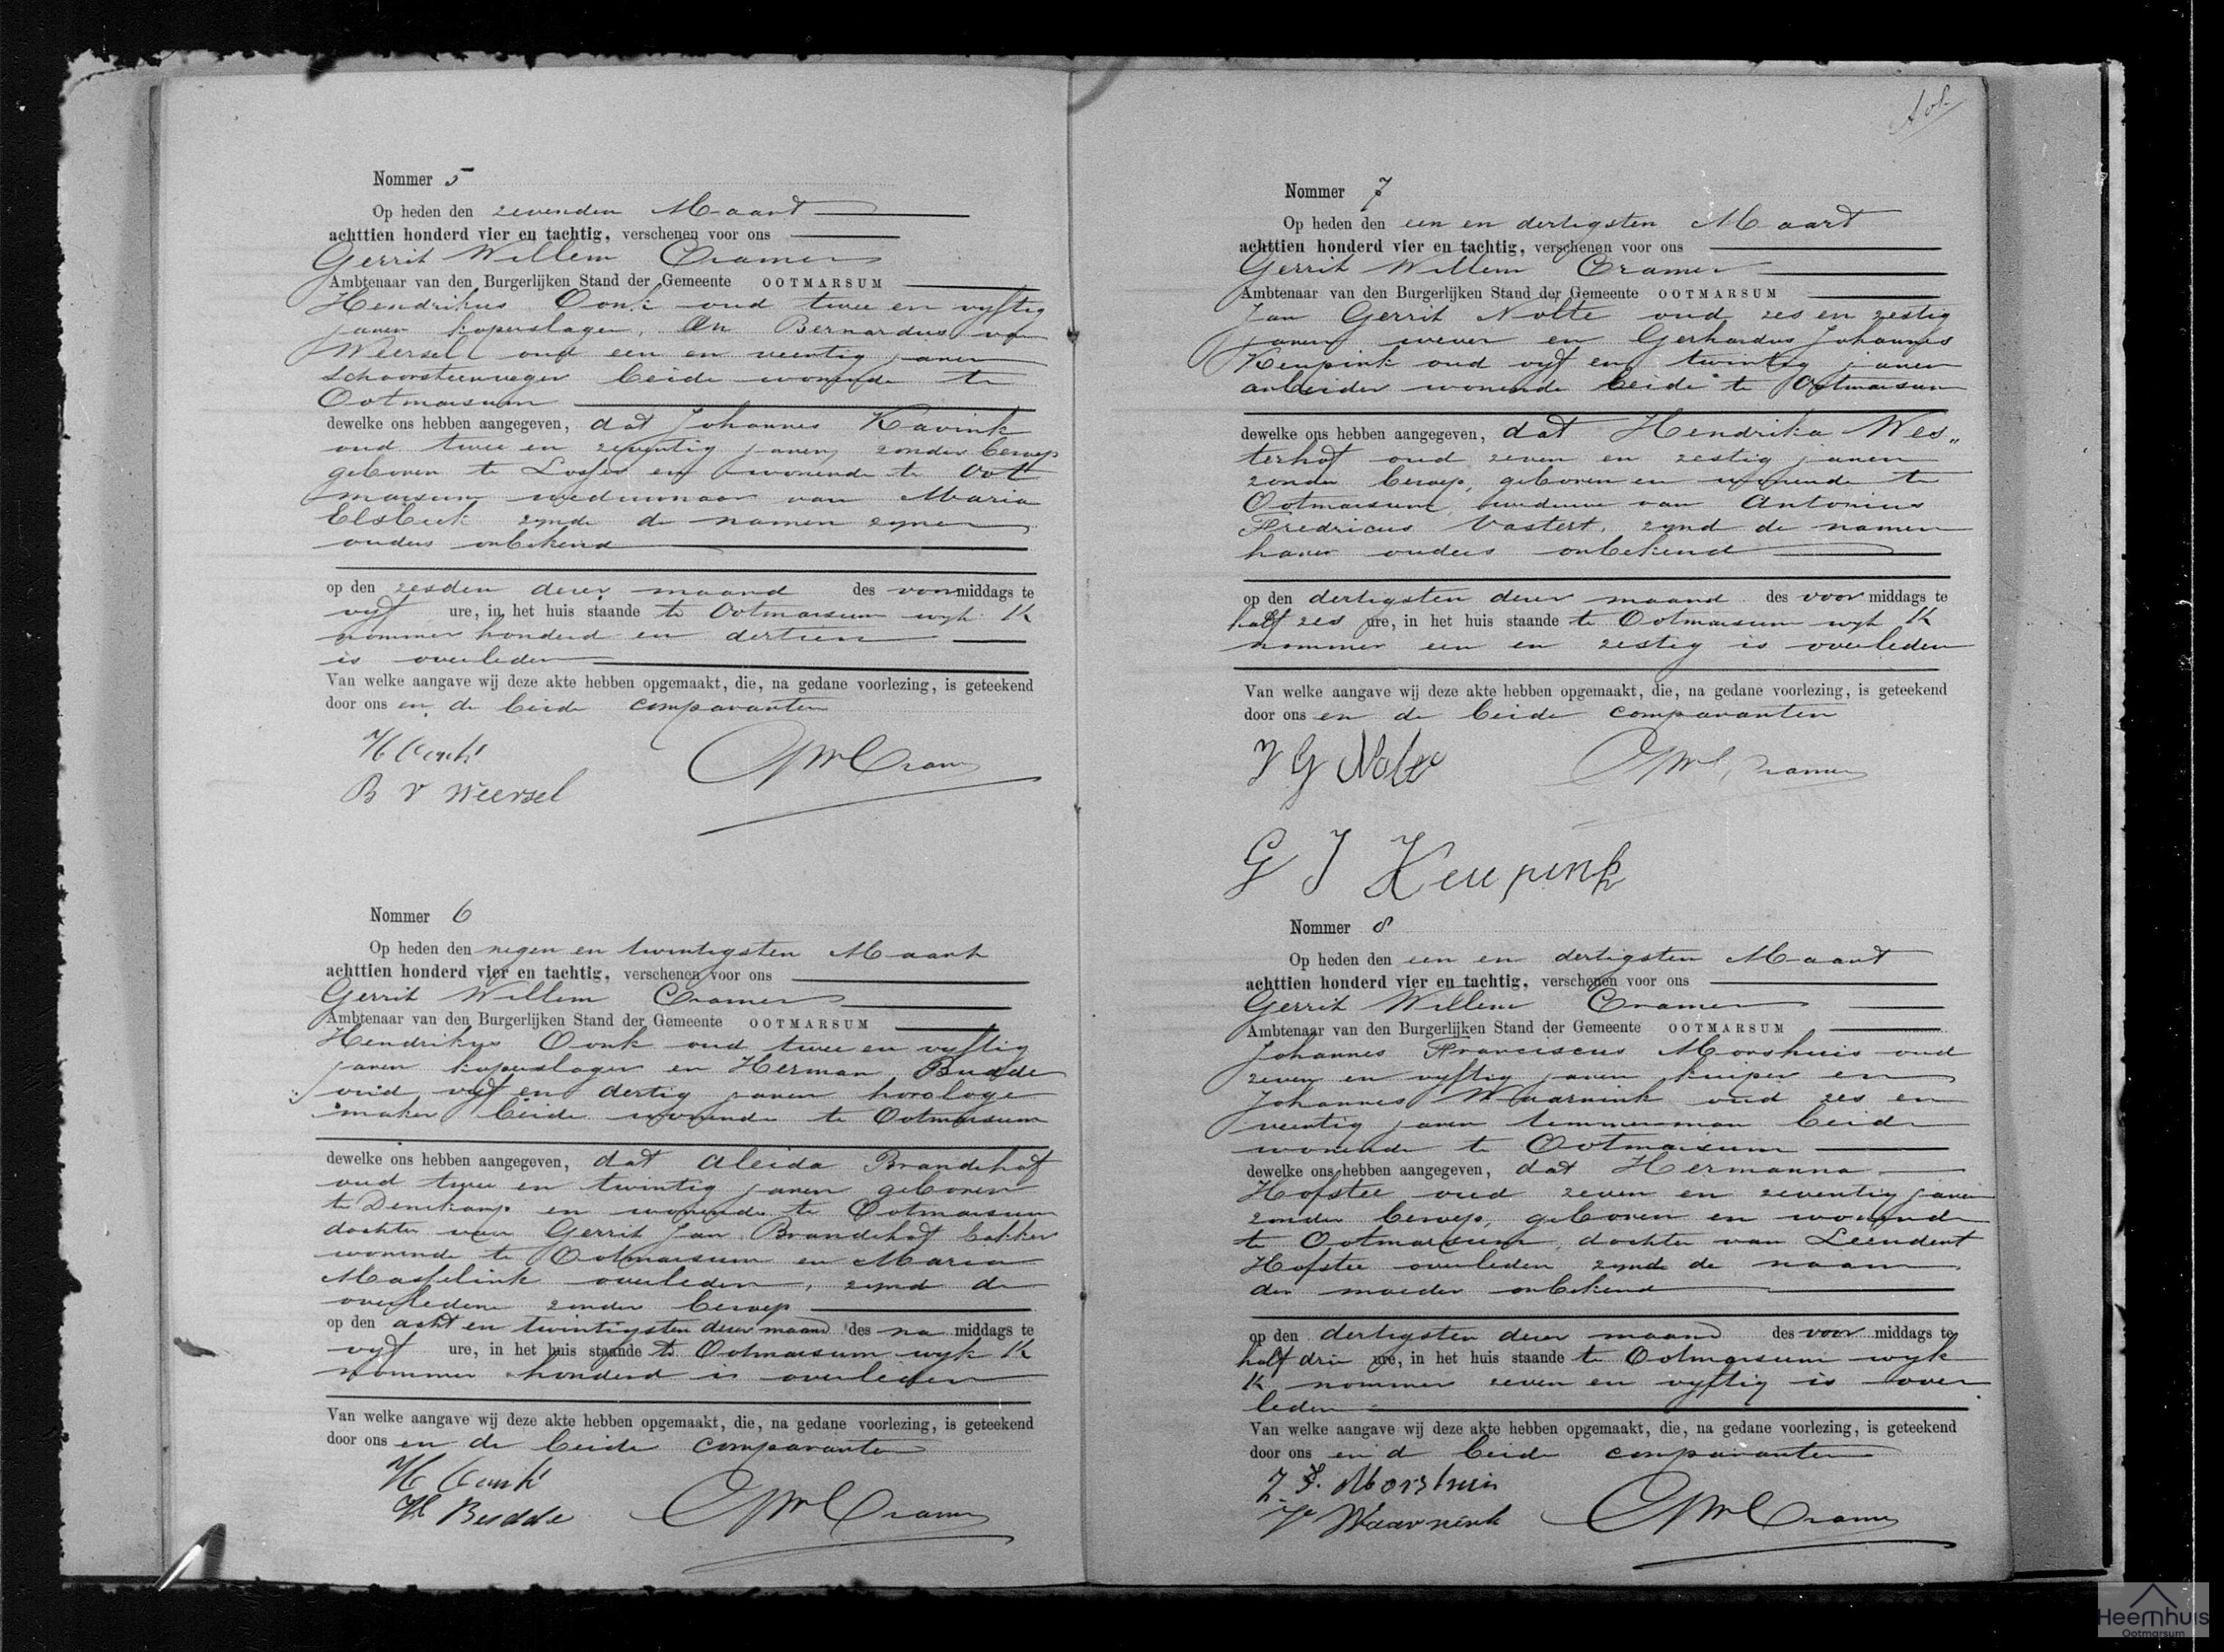 Nommer 5
Op heden den zevenden Maart
achttien honderd vier en tachtig, verschenen voor ons
Gerrit Willem Cramer
Ambtenaar van den Burgerlijken Stand der Gemeente OOTMARSUM
Hendrikus Oonk oud twee en vyftig
jaren koperslager, En Bernardus van
Weersel oud een en veertig jaren
Schoorsteenveger beide wonende te
Ootmarsum
dewelke ons hebben aangegeven, dat Johannes Kavink
oud twee en zeventig jaren, zonder beroep
geboren te Losser en wonende te Oot
marsum weduwnaar van Maria
Elsbeek zynde de namen zyner
ouders onbekend
op den zesden dezer maand des voormiddags te
vyf ure, in het huis staande te Ootmarsum wyk K
nommer honderd en dertien
is overleden
Van welke aangave wij deze akte hebben opgemaakt, die, na gedane voorlezing, is geteekend
door ons en de beide comparanten
H Oonk
GW Cramer
B v Weersel
Nommer 6
Op heden den negen en twintigsten Maart
achttien honderd vier en tachtig, verschenen voor ons
Gerrit Willem Cramer
Ambtenaar van den Burgerlijken Stand der Gemeente OOTMARSUM
Hendrikus Oonk oud twee en vyftig
jaren koperslager en Herman Budde
oud vyf en dertig jaren horologe
maker beide wonende te Ootmarsum
dewelke ons hebben aangegeven, dat Aleida Brandehof
oud twee en twintig jaren geboren
te Denekamp en wonende te Ootmarsum
dochter van Gerrit Jan Brandehof bakker
wonende te Ootmarsum en Maria
Mashelink overleden, zynde de
overledene zonder beroep
op den acht en twintigsten dezer maand des na middags te
vyf ure, in het huis staande te Ootmarsum wyk K
nommer honderd is overleden
Van welke aangave wij deze akte hebben opgemaakt, die, na gedane voorlezing, is geteekend
door ons en de beide comparanten
H Oonk
H Budde GW Cramer
Nommer 7
Op heden den een en dertigsten Maart
achttien honderd vier en tachtig, verschenen voor ons
Gerrit Willem Cramer
Ambtenaar van den Burgerlijken Stand der Gemeente OOTMARSUM
Jan Gerrit Nolte oud zes en zestig
jaren wever en Gerhardus Johannes
Keupink oud vyf en twintig jaren
arbeider wonende beide te Ootmarsum
dewelke ons hebben aangegeven, dat Hendrika Wes„
terhof oud zeven en zestig jaren
zonder beroep, geboren en wonende te
Ootmarsum, weduwe van Antonius
Fredricus Vastert, zynd de namen
harer ouders onbekend
op den dertigsten dezer maand des voor middags te
half zes ure, in het huis staande te Ootmarsum wyk K
nommer een en zestig is overleden
Van welke aangave wij deze akte hebben opgemaakt, die, na gedane voorlezing, is geteekend
door ons en de beide comparanten
J G Nolte GW Cramer
G J Keupink
Nommer 8
Op heden den een en dertigsten Maart
achttien honderd vier en tachtig, verschenen voor ons
Gerrit Willem Cramer
Ambtenaar van den Burgerlijken Stand der Gemeente OOTMARSUM
Johannes Franciscus Morshuis oud
zeven en vyftig jaren kuiper en
Johannes Waarnink oud zes en
veertig jaren timmerman beide
wonende te Ootmarsum
dewelke ons hebben aangegeven, dat Hermanna
Hofstee oud zeven en zeventig jaren
zonder beroep, geboren en wonende
te Ootmarsum, dochter van Leendert
Hofstee overleden zynde de naam
der moeder onbekend
op den dertigsten dezer maand des voor middags te
half drie ure, in het huis staande te Ootmarsum wyk
K nommer zeven en vyftig is over
leden
Van welke aangave wij deze akte hebben opgemaakt, die, na gedane voorlezing, is geteekend
door ons en d beide comparanten
J. F. Morshuis
Waarnink GW Cramer
Heemhuis
Ootmarsum